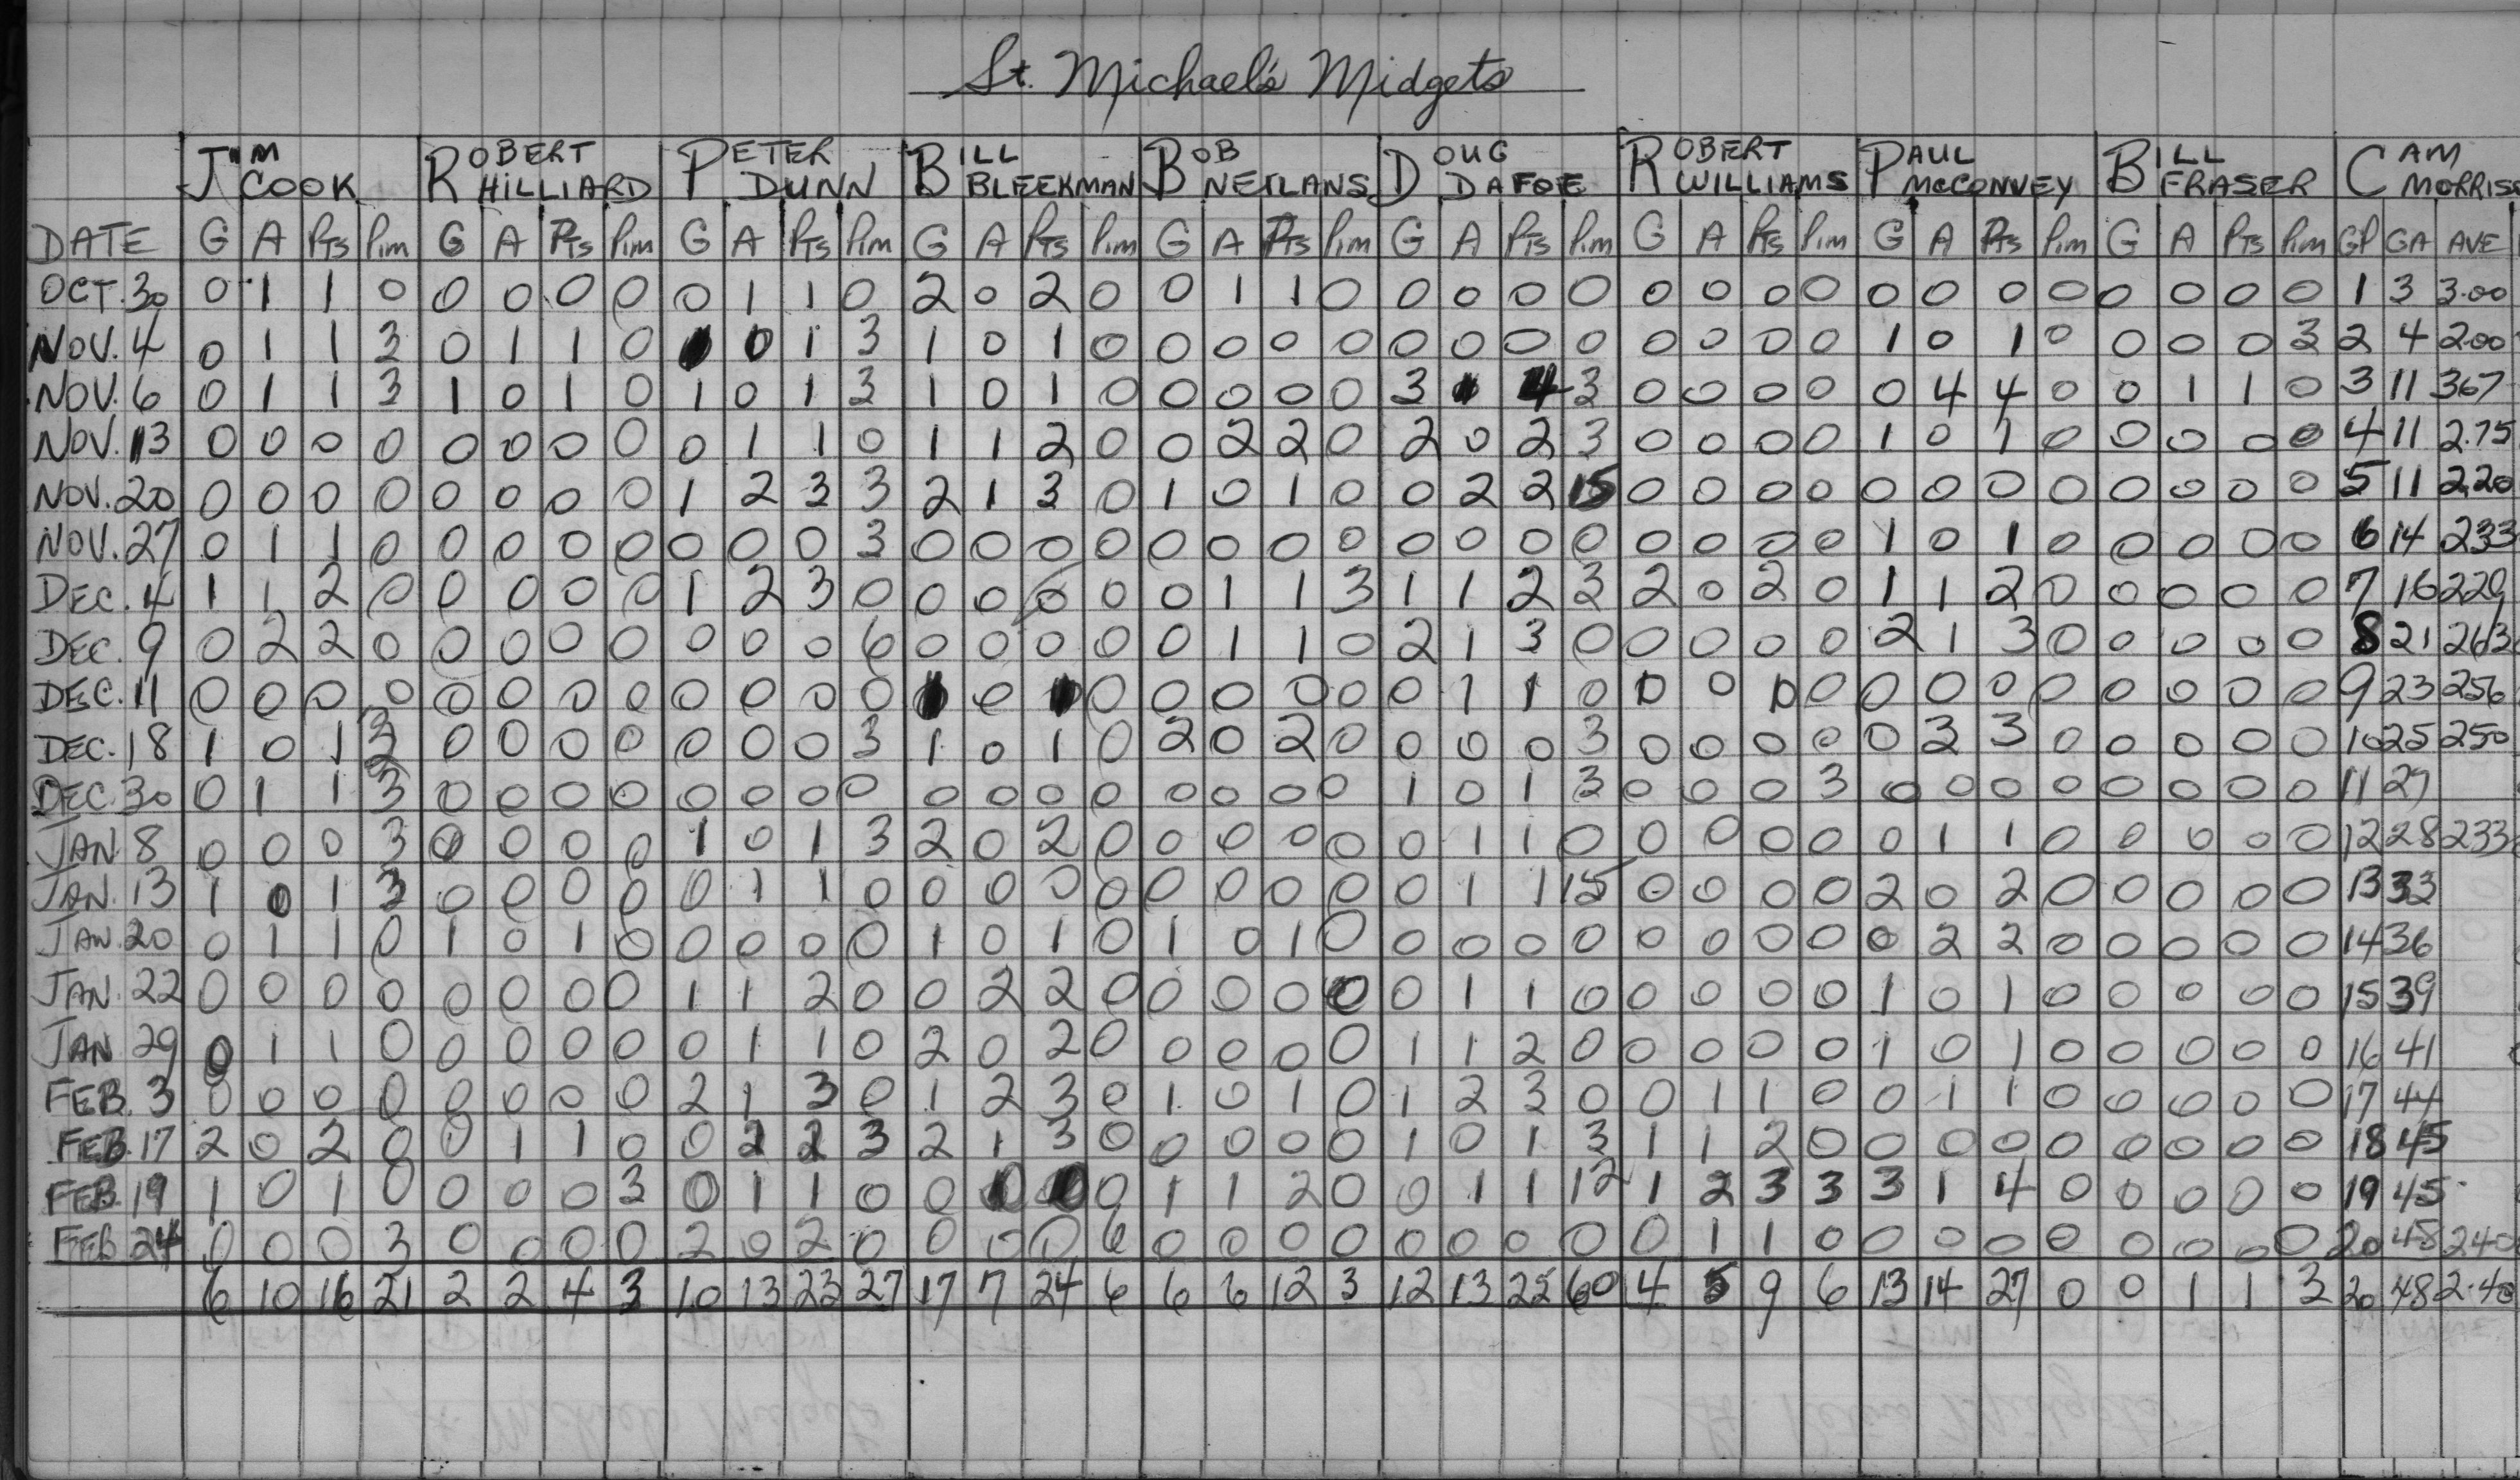 St. Michael's Midgets
JIM COOK ROBERT HILLIARD PETER DUNN BILL BLEEKMAN BOB NEILANS DOUG DAFOE ROBERT WILLIAMS PAUL McCONVEY BILL FRASER CAM MORRIS
DATE G A Pts Pim G A Pts Pim G A Pts Pim G A Pts Pim G A Pts Pim G A Pts Pim G A Pts Pim G A Pts Pim G A Pts Pim GP GA AVE
OCT. 30 0 1 1 0 0 0 0 0 0 1 1 0 2 0 2 0 0 1 1 0 0 0 0 0 0 0 0 0 0 0 0 0 0 0 0 0 1 3 3.00
NOV. 4 0 1 1 3 0 1 1 0 0 1 3 1 0 1 0 0 0 0 0 0 0 0 0 0 0 0 0 1 0 1 0 0 0 0 3 2 4 200
NOV. 6 0 1 1 3 1 0 1 0 1 0 1 3 1 0 1 0 0 0 0 0 3 1 4 3 0 0 0 0 0 4 4 0 0 1 1 0 3 11 367
NOV. 13 0 0 0 0 0 0 0 0 0 1 1 0 1 1 2 0 0 2 2 0 2 0 2 3 0 0 0 0 1 0 1 0 0 0 0 0 4 11 2.75
NOV. 20 0 0 0 0 0 0 0 0 1 2 3 3 2 1 3 0 1 0 1 0 0 2 2 15 0 0 0 0 0 0 0 0 0 0 0 0 5 11 2.20
NOV. 27 0 1 1 0 0 0 0 0 0 0 0 3 0 0 0 0 0 0 0 0 0 0 0 0 0 0 0 0 1 0 1 0 0 0 0 0 6 14 233
DEC. 4 1 1 2 0 0 0 0 0 1 2 3 0 0 0 0 0 0 1 1 3 1 1 2 3 2 0 2 0 1 1 2 0 0 0 0 0 7 16 229
DEC. 9 0 2 2 0 0 0 0 0 0 0 0 6 0 0 0 0 0 1 1 0 2 1 3 0 0 0 0 0 2 1 3 0 0 0 0 0 8 21 263
DEC. 11 0 0 0 0 0 0 0 0 0 0 0 0 0 0 0 0 0 0 0 1 1 0 0 0 0 0 0 0 0 0 0 0 0 0 9 23 256
DEC. 18 1 0 1 3 0 0 0 0 0 0 0 3 1 0 1 0 2 0 2 0 0 0 0 3 0 0 0 0 0 3 3 0 0 0 0 0 10 25 250
DEC. 30 0 1 1 3 0 0 0 0 0 0 0 0 0 0 0 0 0 0 0 0 1 0 1 3 0 0 0 3 0 0 0 0 0 0 0 0 11 27
JAN. 8 0 0 0 3 0 0 0 0 1 0 1 3 2 0 2 0 0 0 0 0 0 1 1 0 0 0 0 0 0 1 1 0 0 0 0 0 12 28 233
JAN. 13 1 0 1 3 0 0 0 0 0 1 1 0 0 0 0 0 0 0 0 0 0 1 1 15 0 0 0 0 2 0 2 0 0 0 0 0 13 33
JAN. 20 0 1 1 0 1 0 1 0 0 0 0 0 1 0 1 0 1 0 1 0 0 0 0 0 0 0 0 0 0 2 2 0 0 0 0 0 14 36
JAN. 22 0 0 0 0 0 0 0 0 1 1 2 0 0 2 2 0 0 0 0 0 0 1 1 0 0 0 0 0 1 0 1 0 0 0 0 0 15 39
JAN 29 0 1 1 0 0 0 0 0 0 1 1 0 2 0 2 0 0 0 0 0 1 1 2 0 0 0 0 0 1 0 1 0 0 0 0 0 16 41
FEB. 3 0 0 0 0 0 0 0 0 2 1 3 0 1 2 3 0 1 0 1 0 1 2 3 0 0 1 1 0 0 1 1 0 0 0 0 0 17 44
FEB. 17 2 0 2 0 0 1 1 0 0 2 2 3 2 1 3 0 0 0 0 0 1 0 1 3 1 1 2 0 0 0 0 0 0 0 0 0 18 45
FEB. 19 1 0 1 0 0 0 0 3 0 1 1 0 0 0 1 1 2 0 0 1 1 12 1 2 3 3 3 1 4 0 0 0 0 0 19 45
FEB. 24 0 0 0 3 0 0 0 0 2 0 2 0 0 0 0 6 0 0 0 0 0 0 0 0 0 1 1 0 0 0 0 0 0 0 0 0 20 48 240
6 10 16 21 2 2 4 3 10 13 23 27 17 7 24 6 6 6 12 3 12 13 25 60 4 5 9 6 13 14 27 0 0 1 1 3 20 48 2.40